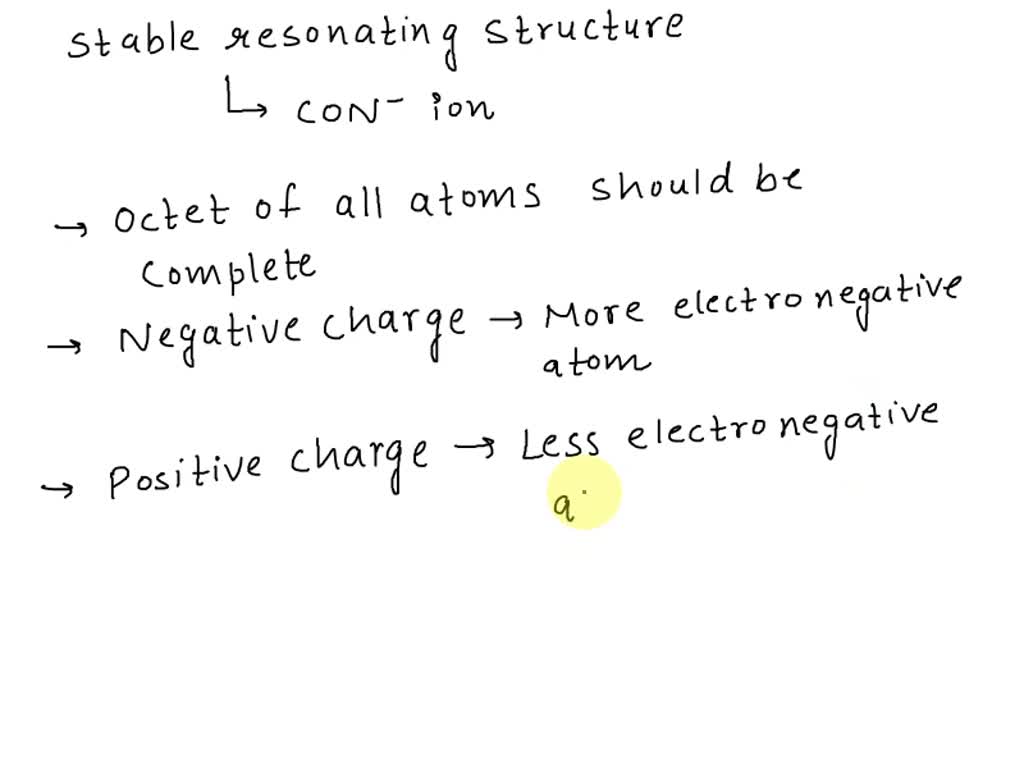 stable resonating structure
↳ CON⁻ ion
→ Octet of all atoms should be
complete
→ Negative charge → More electronegative
atom
→ Positive charge → Less electronegative
a